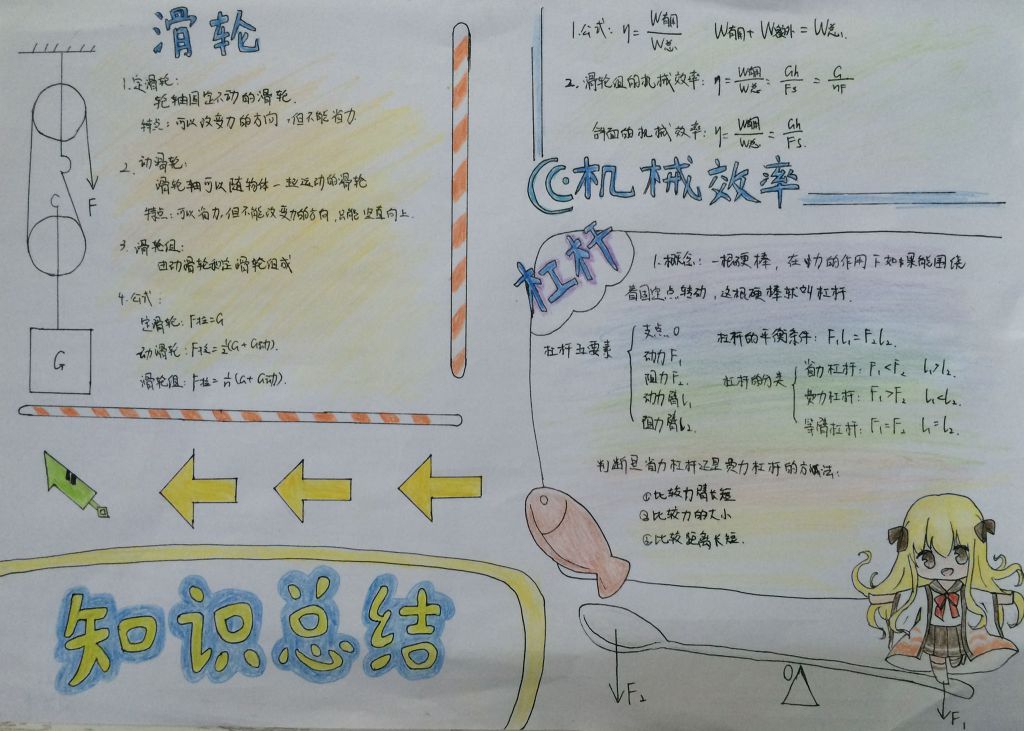 滑轮
1.定滑轮:
轮轴固定不动的滑轮.
特点:可以改变力的方向,但不能省力
2.动滑轮:
滑轮轴可以随物体一起运动的滑轮
特点:可以省力,但不能改变力的方向,只能竖直向上.
3.滑轮组:
由动滑轮和定滑轮组成
4.公式:
定滑轮:F拉=G
动滑轮:F拉=½(G+G动).
滑轮组:F拉=1/n(G+G动).
F
G
知识总结
1.公式:η=W有用/W总 W有用+W额外=W总.
2.滑轮组的机械效率:η=W有用/W总=Gh/Fs=G/nF
斜面的机械效率:η=W有用/W总=Gh/Fs.
机械效率
杠杆
1.概念:一根硬棒,在力的作用下如果能围绕
着固定点转动,这根硬棒就叫杠杆.
杠杆五要素
支点O
动力F₁
阻力F₂
动力臂l₁
阻力臂l₂.
杠杆的平衡条件:F₁l₁=F₂l₂.
杠杆的分类
省力杠杆:F₁<F₂ l₁>l₂.
费力杠杆:F₁>F₂ l₁<l₂.
等臂杠杆:F₁=F₂ l₁=l₂.
判断是省力杠杆还是费力杠杆的方法:
①比较力臂长短
②比较力的大小
③比较距离长短.
F₂
O
F₁